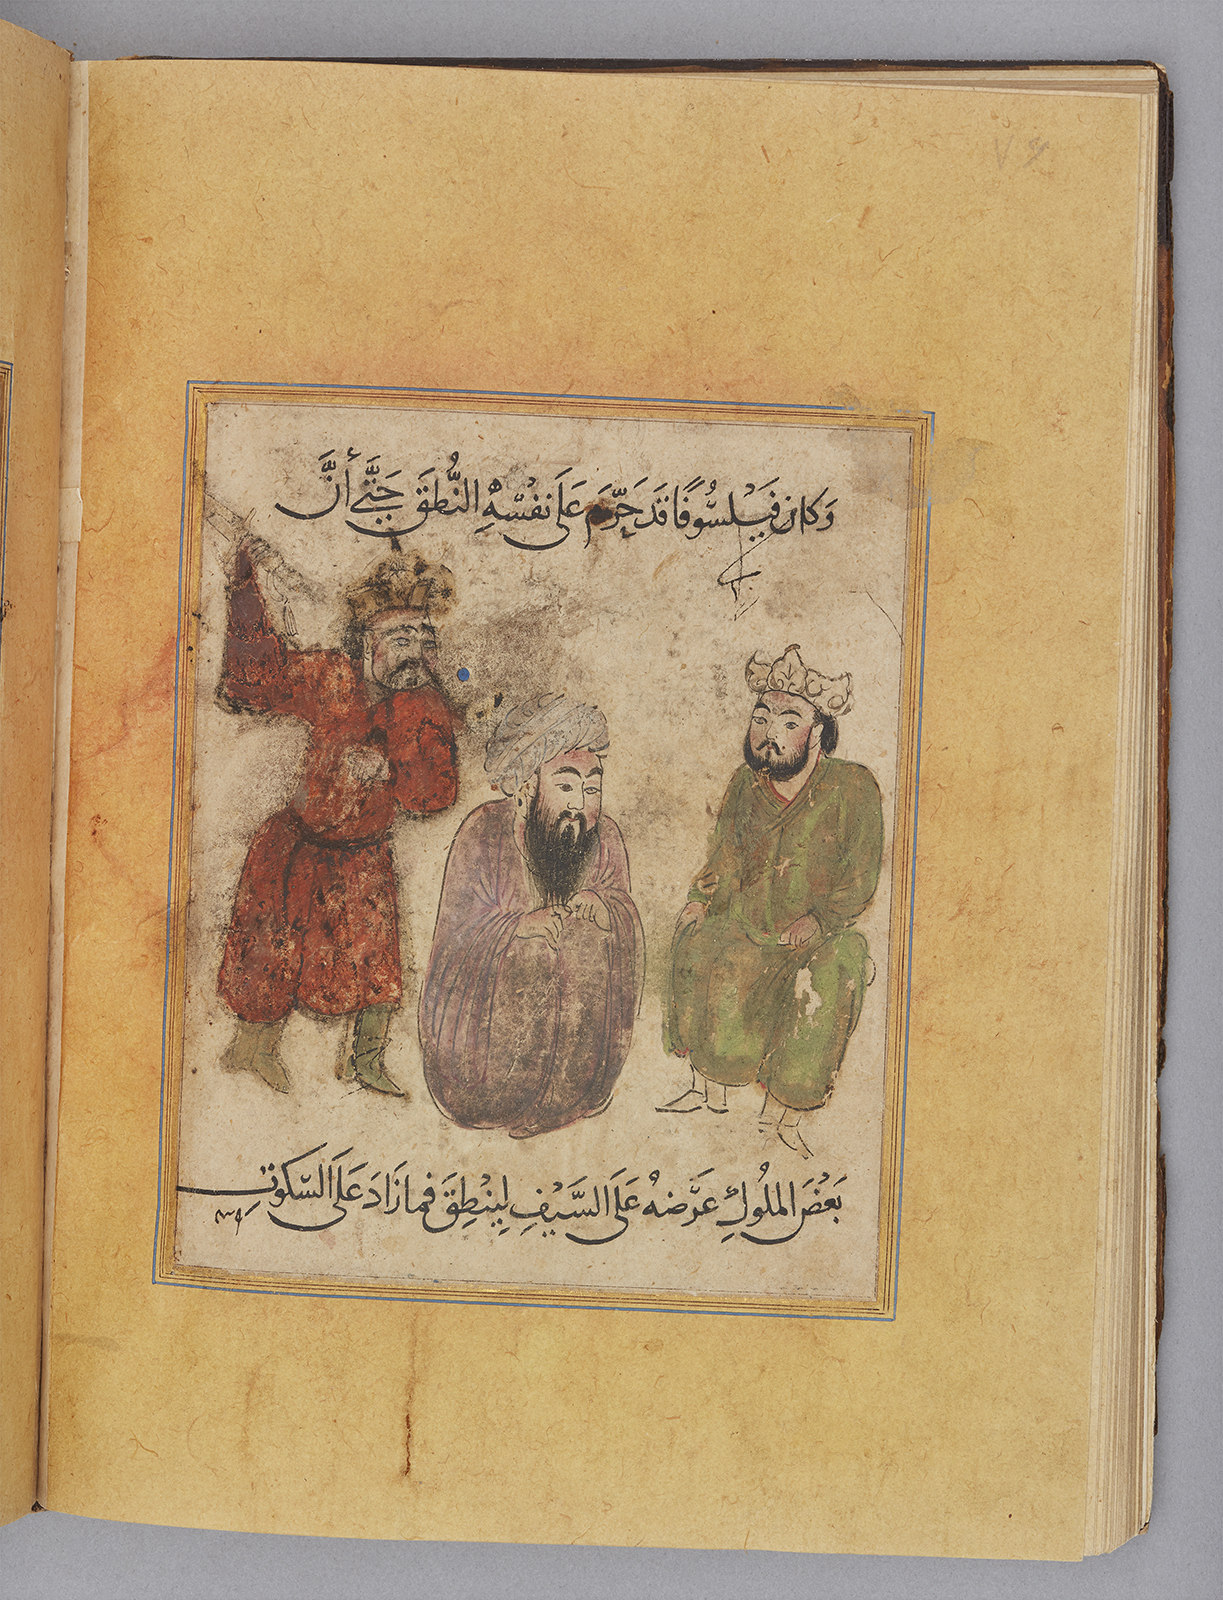 وَكَانَ فَيْلسُوفًا قَد حَرَّمَ عَلَى نفْسِهِ النُّطقَ حَتَّى أَنَّ
بَعْضَ المُلُوكِ عَرَّضهُ عَلَى السَّيْفِ لِيَنْطِقَ فمازَادَ عَلَى السّكوتِ